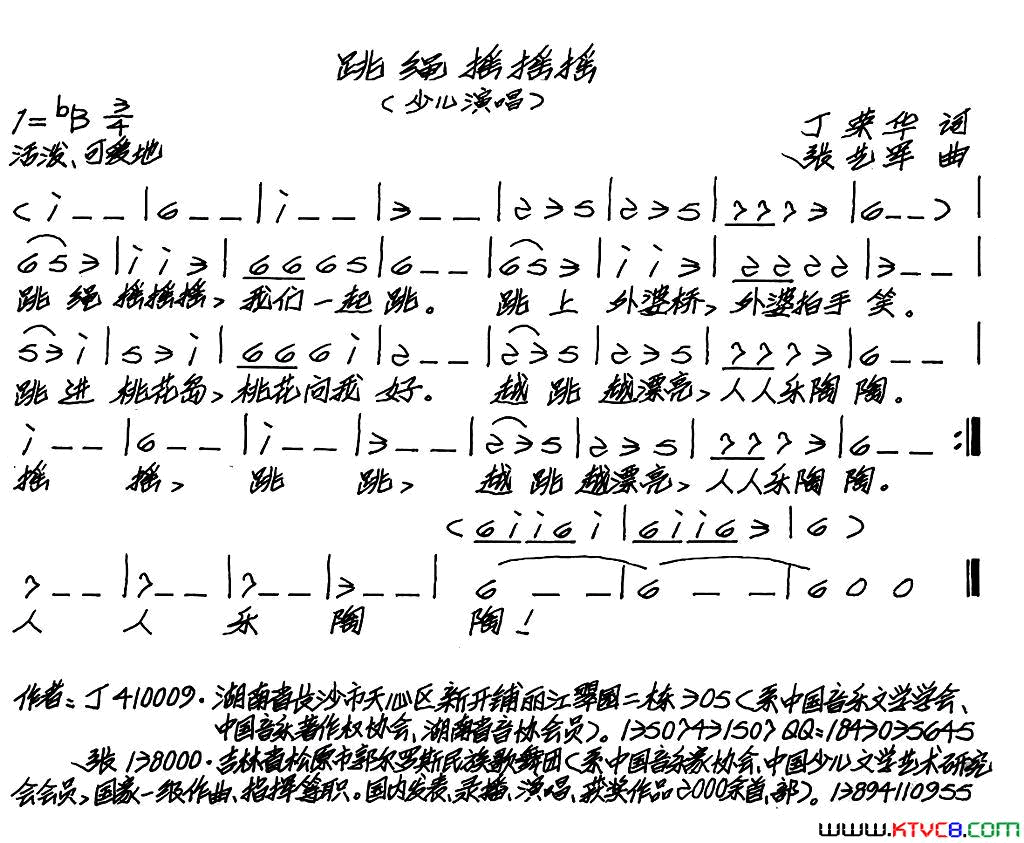 跳绳摇摇摇
(少儿演唱)
1=bB 3/4
活泼、可爱地
丁荣华 词
张艺军 曲
(i__|6__|i__|3__|235|235|7773|6__)|
653|ii3|6665|6__|653|ii3|2222|3__|
跳绳摇摇摇,我们一起跳。 跳上外婆桥,外婆拍手笑。
53i|53i|666i|2__|235|235|7773|6__|
跳进桃花岛,桃花向我好。 越跳越漂亮,人人乐陶陶。
i__|6__|i__|3__|235|235|7773|6__:‖
摇 摇,跳 跳,越跳越漂亮,人人乐陶陶。
(6ii6i|6ii63|6)
7__|7__|7__|3__|6__|6__|600‖
人 人 乐 陶 陶!
作者:丁410009·湖南省长沙市天心区新开铺丽江翠园二栋305(系中国音乐文学学会、
中国音乐著作权协会、湖南省音协会员)。13507431507 QQ:1843035645
张138000·吉林省松原市郭尔罗斯民族歌舞团(系中国音乐家协会、中国少儿文学艺术研究
会会员,国家一级作曲、指挥等职。国内发表、录播、演唱、获奖作品2000余首、部)。13894110955
www.KTVC8.com